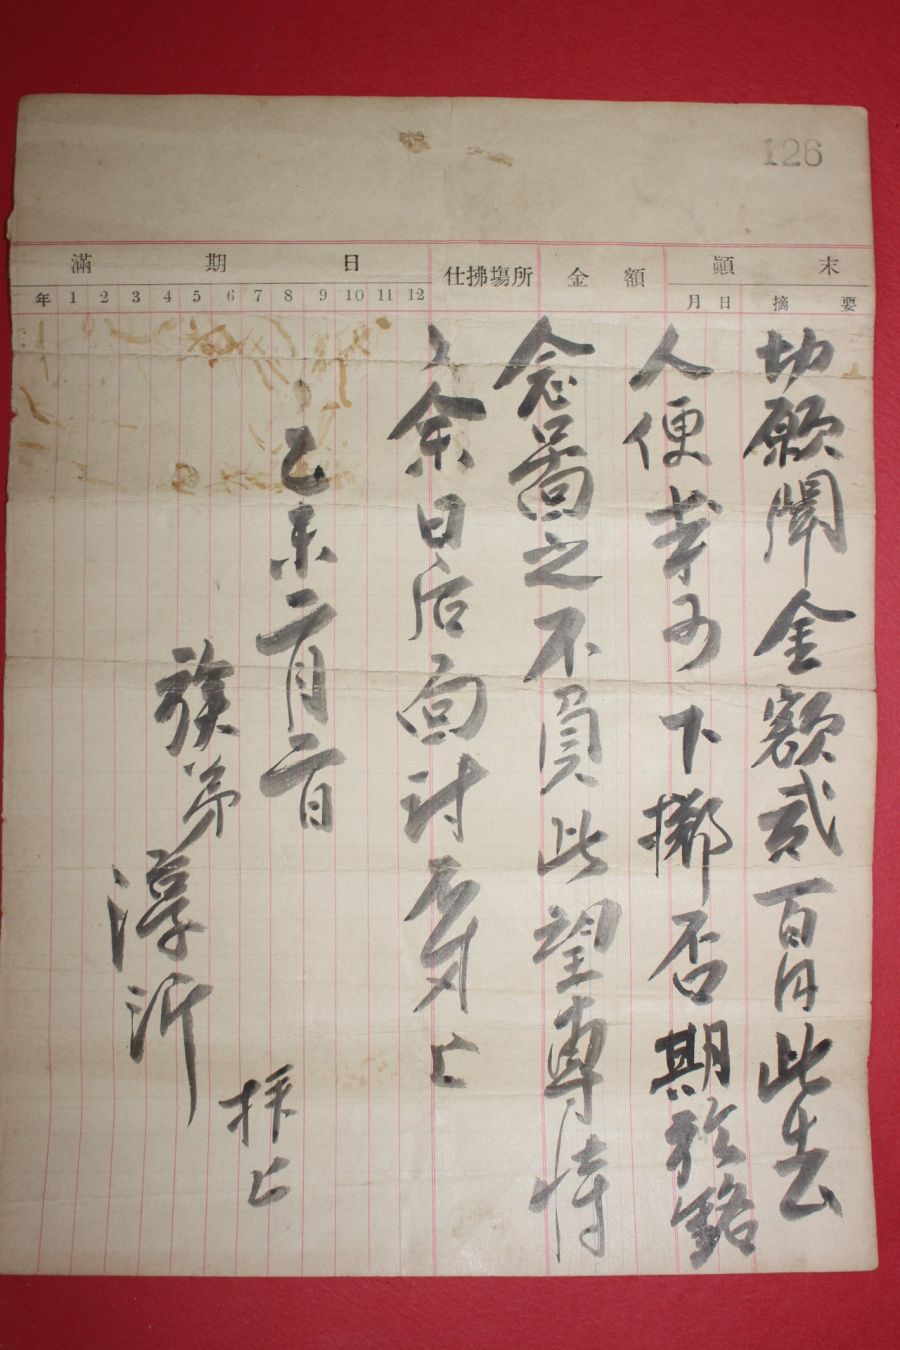 126
顚末
金額
仕拂場所
滿期日
月日 摘要
年 1 2 3 4 5 6 7 8 9 10 11 12
切願聞金額貳百円此去
人便幸可下擲否期於銘
念啚之不負此望專恃
〻余日后面討不多上
乙未二月二日
族弟淳沂
拜上